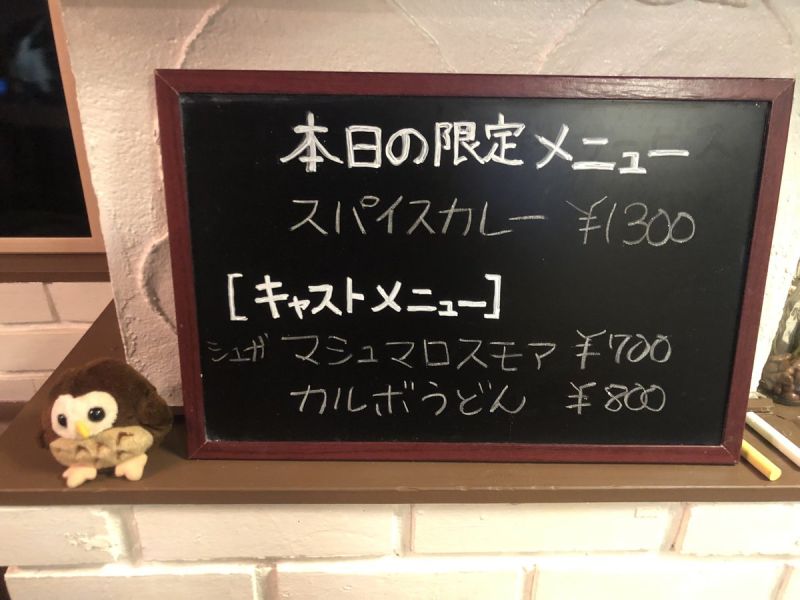 本日の限定メニュー
スパイスカレー ¥1300
[キャストメニュー]
シュガ マシュマロスモア ¥700
カルボうどん ¥800